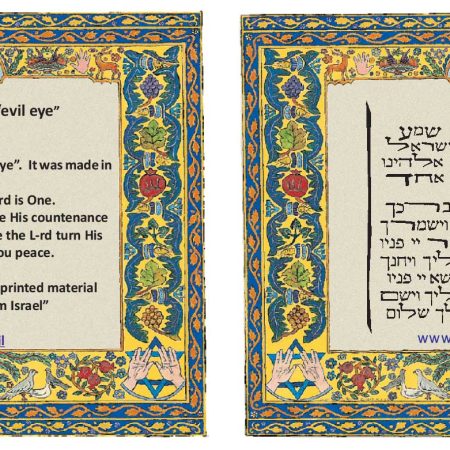 “evil eye”
ye”. It was made in
rd is One.
e His countenance
e the L-rd turn His
ou peace.
printed material
m Israel”
il
שמע
ישראל
אלהינו
אחד
ברכך
וישמרך
ר יי פניו
ליך ויחנך
שא יי פניו
ליך וישם
לך שלום
www.